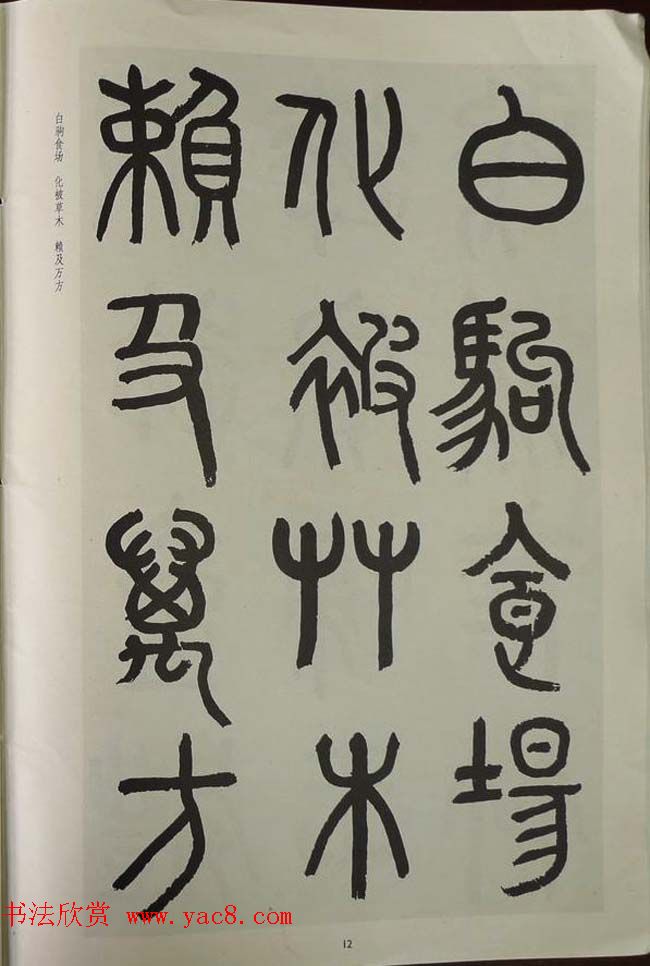 白駒食場
化被艸木
賴及萬方
白驹食场 化被草木 赖及万方
书法欣赏 www.yac8.com
12